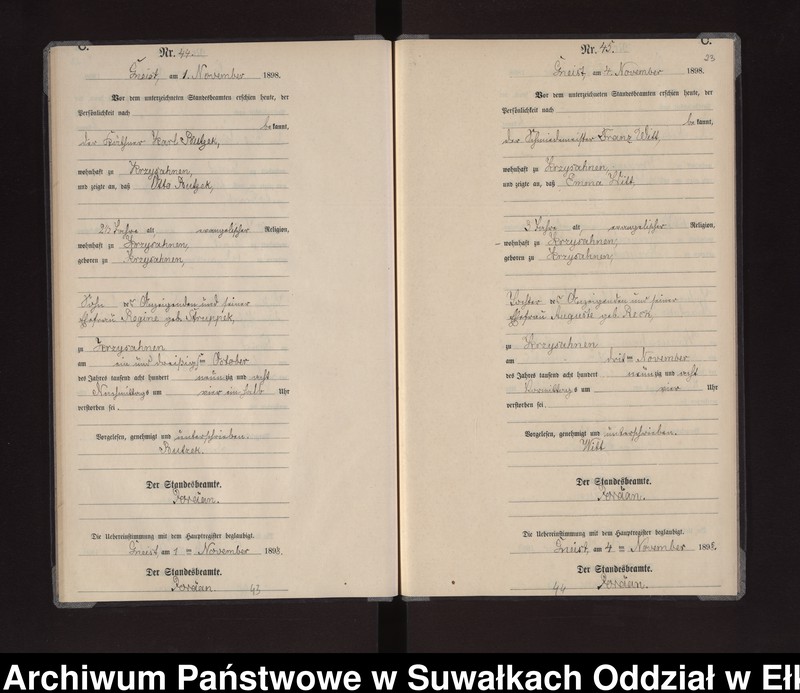 C.
Nr. 44.
Gneist, am 1. November 1898.
Vor dem unterzeichneten Standesbeamten erschien heute, der
Persönlichkeit nach
bekannt,
der Käthner Karl
wohnhaft zu Krzysahnen,
und zeigte an, daß Otto
23 Jahre alt, evangelischer Religion,
wohnhaft zu Krzysahnen,
geboren zu Krzysahnen,
Sohn des Anzeigenden und seiner
Ehefrau Regine geb.
zu Krzysahnen
am ein und dreißigsten October
des Jahres tausend acht hundert neunzig und acht
Nachmittags um vier ein halb Uhr
verstorben sei.
Vorgelesen, genehmigt und unterschrieben.
Der Standesbeamte.
Jordan.
Die Uebereinstimmung mit dem Hauptregister beglaubigt.
Gneist, am 1 ten November 1898.
Der Standesbeamte.
Jordan.
43
C.
Nr. 45.
23
Gneist, am 4. November 1898.
Vor dem unterzeichneten Standesbeamten erschien heute, der
Persönlichkeit nach
bekannt,
der Schmiedemeister Franz Witt,
wohnhaft zu Krzysahnen,
und zeigte an, daß Emma Witt,
3 Jahre alt, evangelischer Religion,
wohnhaft zu Krzysahnen,
geboren zu Krzysahnen,
Tochter des Anzeigenden und seiner
Ehefrau Auguste geb.
zu Krzysahnen
am dritten November
des Jahres tausend acht hundert neunzig und acht
Vormittags um vier Uhr
verstorben sei.
Vorgelesen, genehmigt und unterschrieben.
Witt
Der Standesbeamte.
Jordan.
Die Uebereinstimmung mit dem Hauptregister beglaubigt.
Gneist, am 4 ten November 1898.
Der Standesbeamte.
Jordan.
44
Archiwum Państwowe w Suwałkach Oddział w Ełk